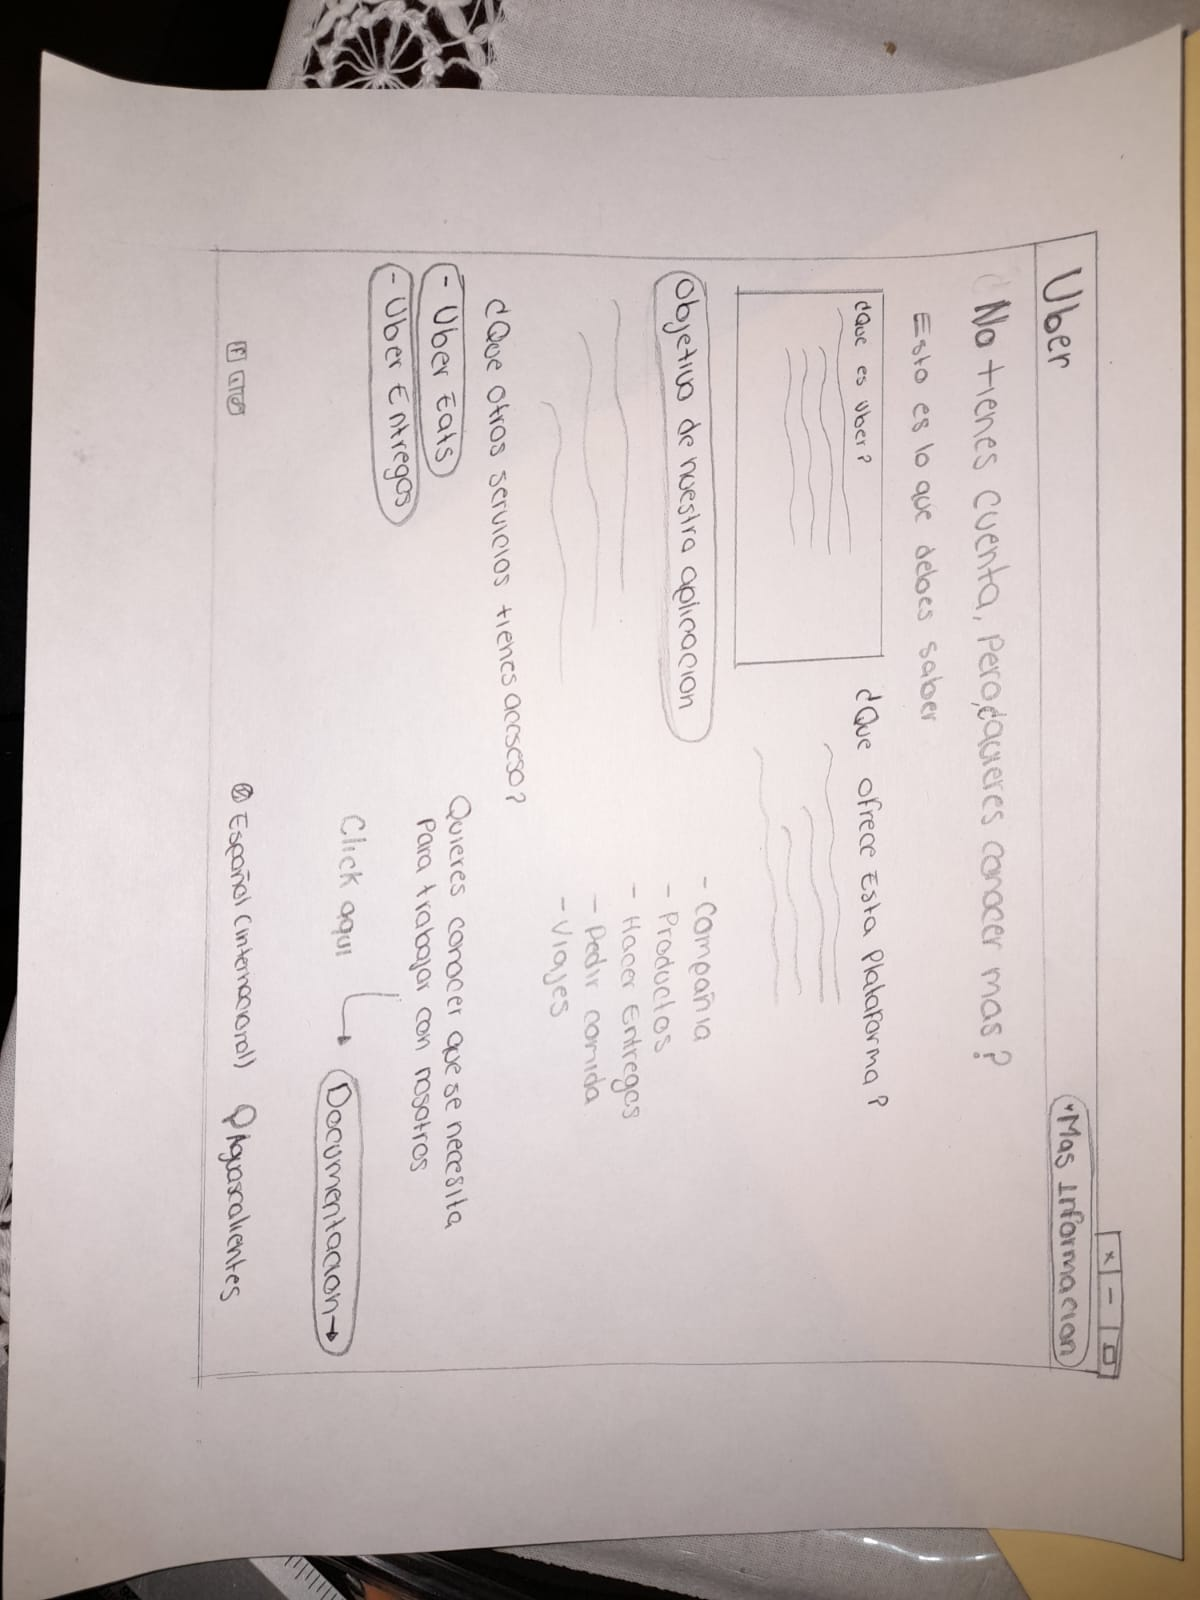 x - □
Uber
Mas Informacion
¿No tienes cuenta, pero, ¿quieres conocer mas?
Esto es lo que debes saber
¿Que es Uber?
¿Que ofrece Esta Plataforma?
Objetivo de nuestra aplicacion
- Compañia
- Productos
- Hacer Entregas
- Pedir comida
- Viajes
¿Que otros servicios tienes accseso?
- Uber Eats
- Uber Entregas
Quieres conocer que se necesita
Para trabajar con nosotros
Click aqui
Documentacion →
f
Español (internacional)
Aguascalientes